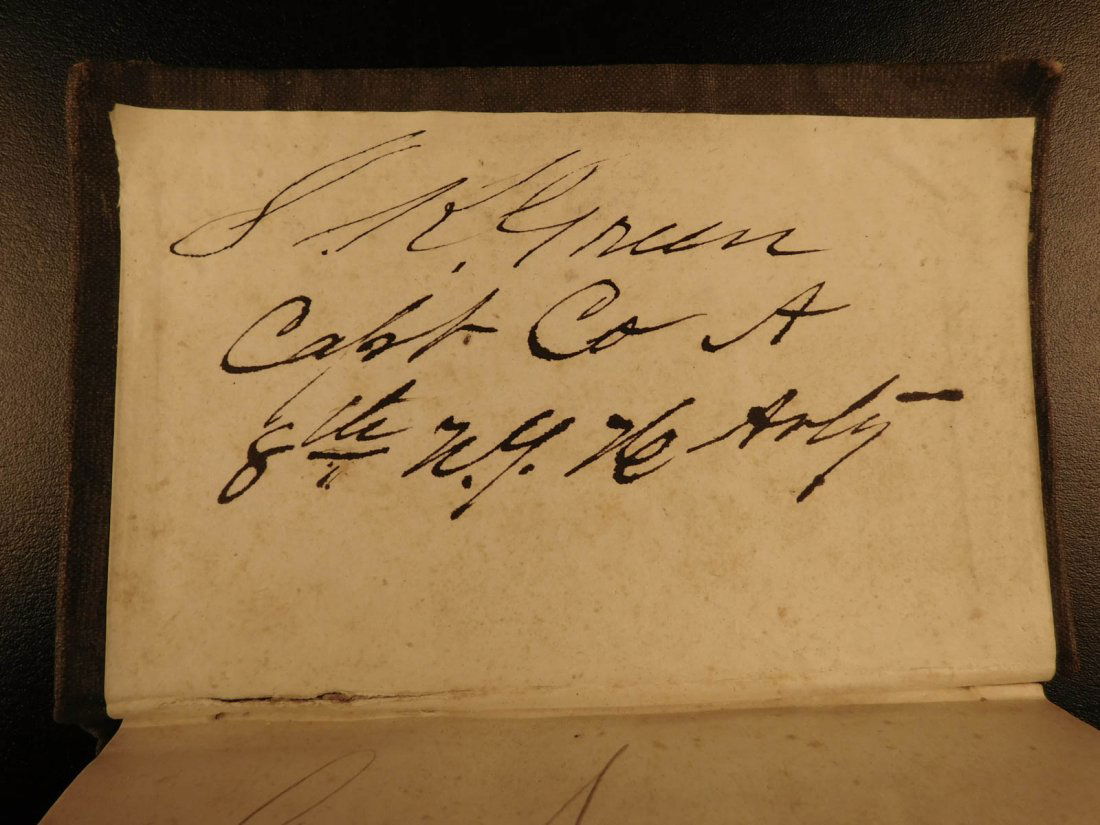 S. K. Green
Capt. Co A
8th N.Y. H Arty